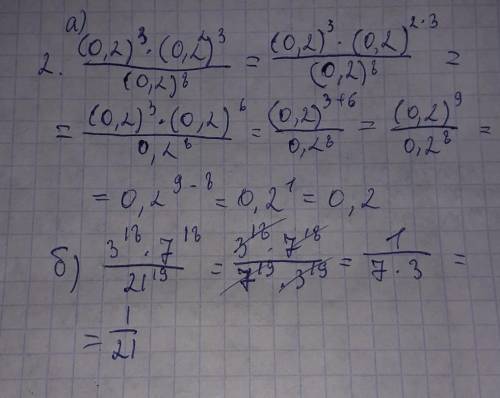 а)
2. ((0,2)³ · (0,2²)³)/(0,2)⁸ = ((0,2)³ · (0,2)^(2·3))/(0,2)⁸ =
= ((0,2)³ · (0,2)⁶)/0,2⁸ = (0,2)^(3+6)/0,2⁸ = (0,2)⁹/0,2⁸ =
= 0,2^(9-8) = 0,2¹ = 0,2
б) (3¹⁸ · 7¹⁸)/21¹⁹ = (3¹⁸ · 7¹⁸)/(7¹⁹ · 3¹⁹) = 1/(7 · 3) =
= 1/21